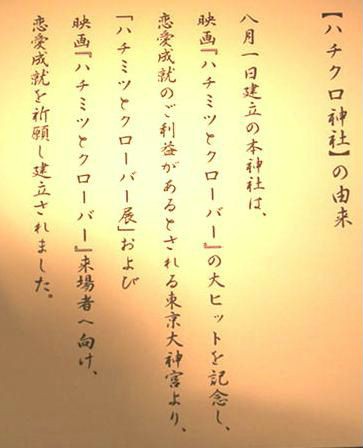 【ハチクロ神社】の由来
八月一日建立の本神社は、
映画『ハチミツとクローバー』の大ヒットを記念し、
恋愛成就のご利益があるとされる東京大神宮より、
「ハチミツとクローバー展」および
映画『ハチミツとクローバー』来場者へ向け、
恋愛成就を祈願し建立されました。